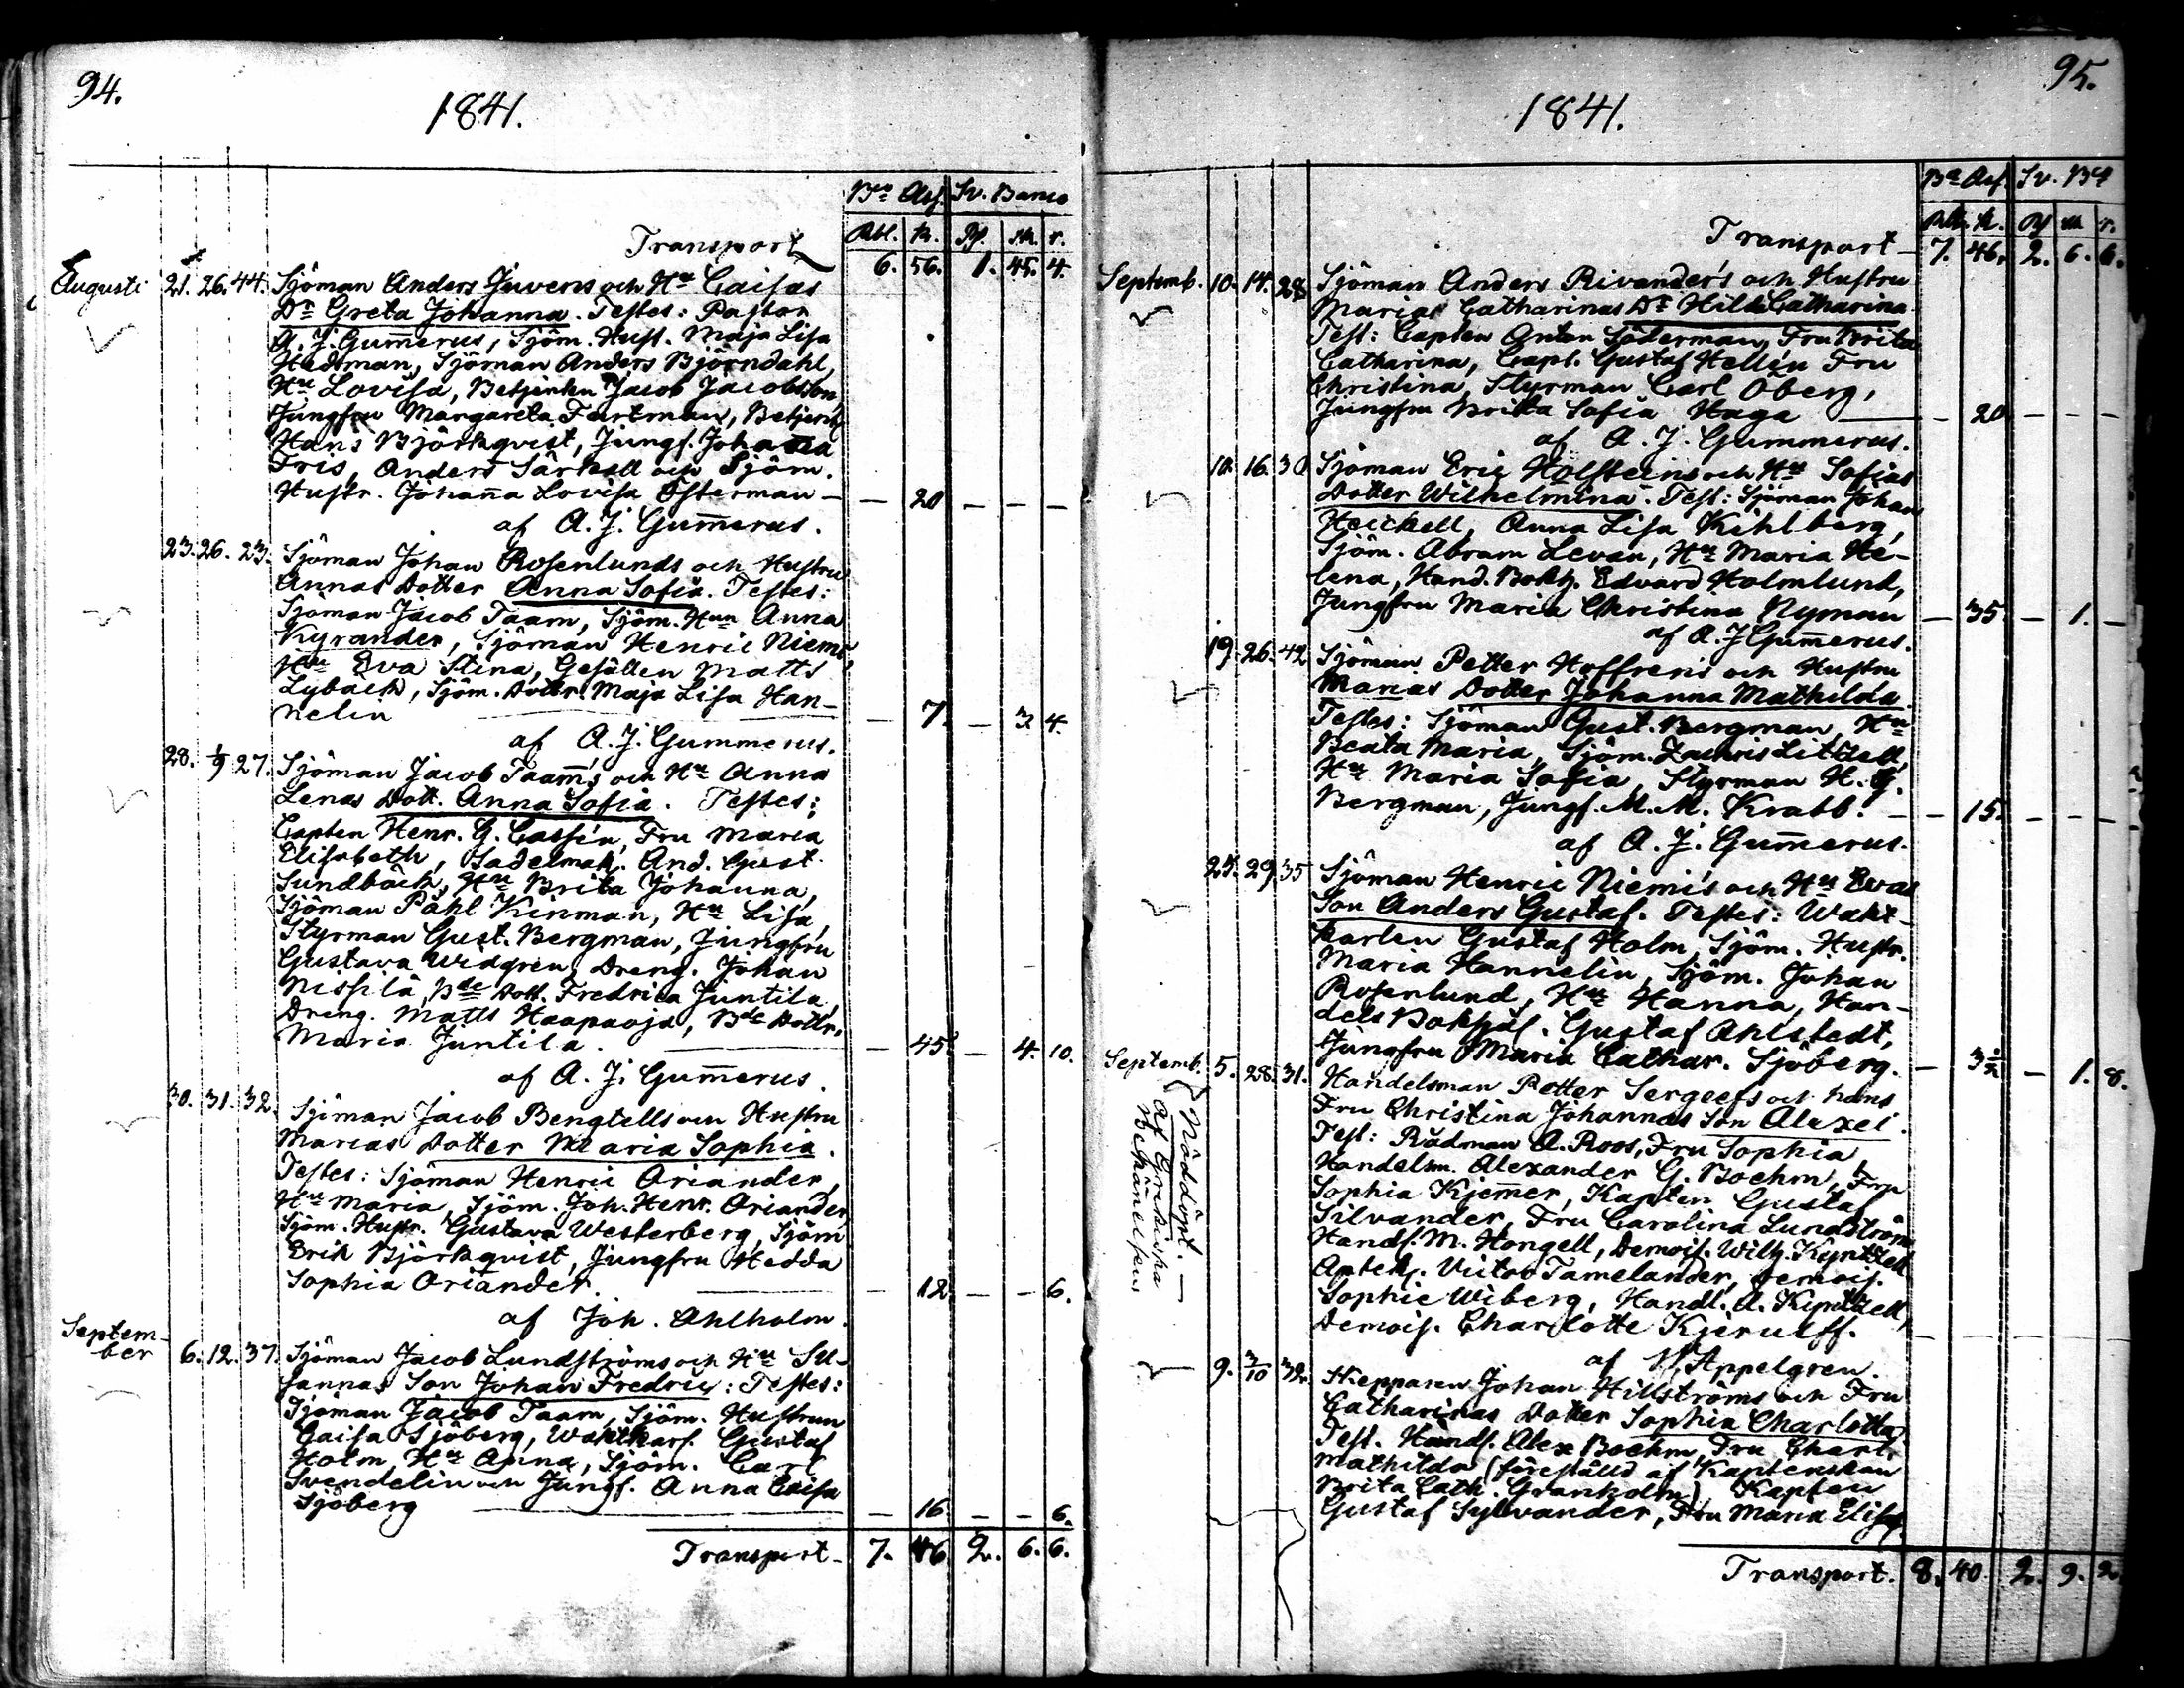 94.
1841.
Bco Ass. Sv. Banco
Rbl. k. Rf. sk. r.
Transport 6. 56. 1. 45. 4.
Augusti 21. 26. 44. Sjöman Anders Juvens och Hu Caisas
Dr Greta Johanna. Testes: Pastor
A. J. Gum̄erus, Sjöm. Hust. Maja Lisa
Hedman, Sjöman Anders Björndahl,
Hu Lovisa, Betjenten Jacob Jacobsson,
Jungfru Margareta Fortman, Betjent
Hans Björkqvist, Jungf. Johanna
Fris, Anders Särkell och Sjöm.
Hustr. Johan̄a Lovisa Österman — — 20 — — —
af A. J. Gum̄erus.
23. 26. 23. Sjöman Johan Rosenlunds och Hustru
Annas Dotter Anna Sofia. Testes:
Sjöman Jacob Taam, Sjöm. Hun Anna
Kyrander, Sjöman Henric Niemi,
Hu Eva Stina, Gesällen Matts
Lybäck, Sjöm. Dottr. Maja Lisa Han-
nelin — 7. — 3 4.
af A. J. Gummerus.
28. 1/9 27. Sjöman Jacob Taam̄s och Hu Anna
Lenas Dott. Anna Sofia. Testes:
Capten Henr. G. Cassén, Fru Maria
Elisabeth, Sadelmak. And. Gust.
Sundbäck, Hu Brita Johanna,
Sjöman Påhl Kinman, Hu Lisa,
Styrman Gust. Bergman, Jungfru
Gustava Widgren, Dreng. Johan
Nissilä, Bde Dott. Fredrica Juntila,
Dreng. Matts Haapaoja, Bde Dottr.
Maria Juntila. — 45. — 4. 10.
af A. J. Gum̄erus.
30. 31. 32. Sjöman Jacob Bengtells och Hustru
Marias Dotter Maria Sophia.
Testes: Sjöman Henric Oriander,
Hu Maria, Sjöm. Joh. Henr. Oriander,
Sjöm. Hustr. Gustava Westerberg, Sjöm
Erik Björkqvist, Jungfru Hedda
Sophia Oriander. — 12. — — 6.
af Joh. Ahlholm.
Septem-
ber 6. 12. 37. Sjöman Jacob Lundströms och Hu Su-
sannas Son Johan Fredric: Testes:
Sjöman Jacob Taam, Sjöm. Hustrun
Caisa Sjöberg, Waktkarl. Gustaf
Holm, Hu Anna, Sjöm. Carl
Svendelin och Jungf. Anna Caisa
Sjöberg — 16 — — 6.
Transport — 7. 46 2. 6. 6.
95.
1841.
Bco Ass. Sv. Bco
Rbl. k. Rf sk r.
Transport — 7. 46. 2. 6. 6.
Septemb. 10. 14. 28 Sjöman Anders Rivander's och Hustru
Marias Catharinas Dr Hilda Catharina.
Test: Capten Anton Söderman, Fru Brita
Catharina, Capt. Gustaf Hellén Fru
Christina, Styrman Carl Öberg,
Jungfru Brita Sofia Haga — — 20 — — —
af A. J. Gummerus.
10. 16. 30 Sjöman Eric Holsteins och Hu Sofias
Dotter Wilhelmina. Test: Sjöman Johan
Heickell, Anna Lisa Kihlberg,
Sjöm. Abram Levan, Hu Maria He-
lena, Hand. Bokh. Edvard Holmlund,
Jungfru Maria Christina Nyman — 35 — 1. —
af A. J Gum̄erus.
19. 26. 42 Sjöman Petter Hoffrens och Hustru
Marias Dotter Johanna Mathilda.
Testes: Sjöman Gust. Bergman, Hu
Beata Maria, Sjöm. Zachris Litzell,
Hu Maria Sofia, Styrman H. G.
Bergman, Jungf. M. M. Krabb. — — 15. — — —
af A. J. Gum̄erus.
29. 35 Sjöman Henric Niemis och Hu Evas
Son Anders Gustaf. Testes: Wakt-
karlen Gustaf Holm, Sjöm. Hustr.
Maria Hannelin, Sjöm. Johan
Rosenlund, Hu Hanna, Han-
dels Bokhål. Gustaf Ahlstedt,
Jungfru Maria Cathar. Sjöberg. — — 1. 8.
Septemb. 5. 28. 31. Handelsman Petter Sergeefs och hans
Fru Christina Johannas Son Alexei.
Nöddöpt. —
af Grekiska
Bekännelsen.
Test: Rådman A. Roos, Fru Sophia,
Handelsm. Alexander G. Boehm, Fru
Sophia Kjem̄er, Kapten Gustaf
Silvander, Fru Carolina Lundström
Handl. M. Hongell, Demois. Wilh. Kyntzell
Apthek. Victor Tamelander, Demois.
Sophie Wiberg, Handl. A. Kyntzell,
Demois. Charlotte Kjerulff. — — — — —
af W. Appelgren.
9. 3/10 39. Skepparen Johan Hillströms och Fru
Catharinas Dotter Sophia Charlotta
Test. Handl. Alex Boehm, Fru Charl.
Mathilda (föreställd af Kaptenskan
Brita Cath. Granholm) Kapten
Gustaf Sylvander, Fru Maria Elisab.
Transport. 8. 40 2. 9. 2.